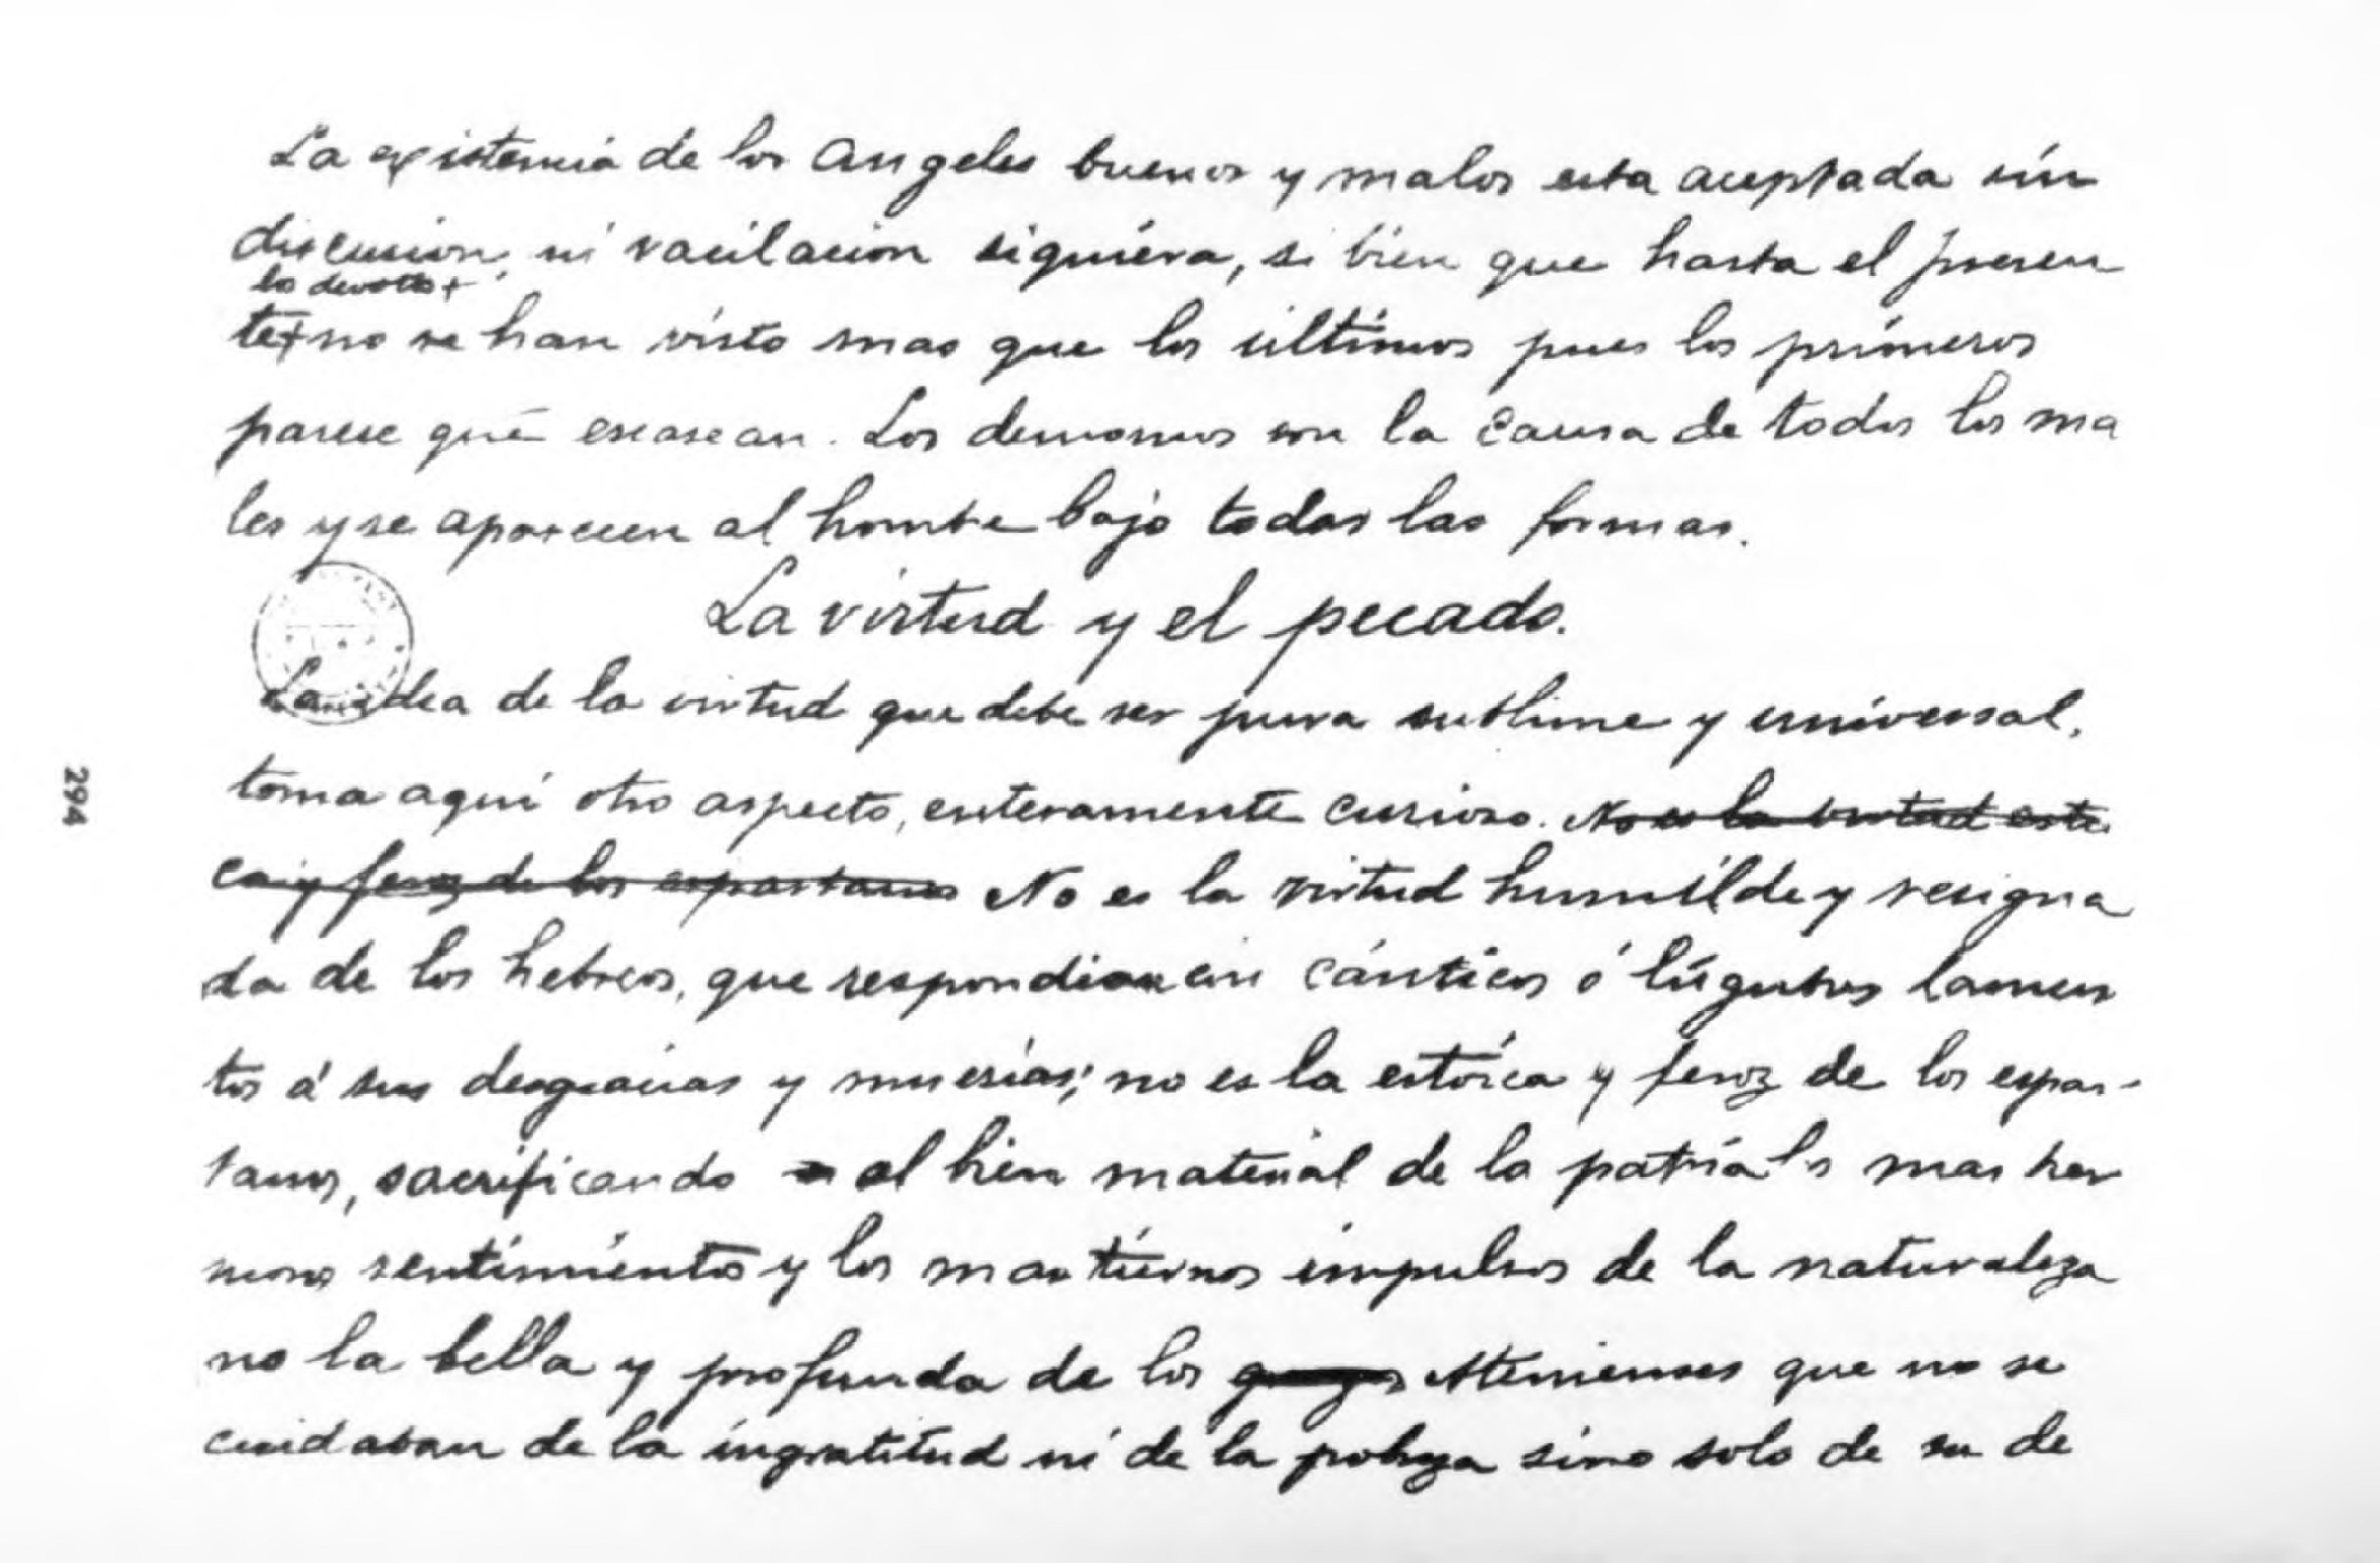 La existencia de los Angeles buenos y malos esta aceptada sin
discusion, ni vacilacion siquiera, si bien que hasta el presen
los devotos +
te + no se han visto mas que los últimos pues los primeros
parece que escasean. Los demonios son la causa de todos los ma
les y se aparecen al hombre bajo todas las formas.
La virtud y el pecado.
La idea de la virtud que debe ser pura sublime y universal,
toma aqui otro aspecto, enteramente curioso. No es la virtud estoi
ca y feroz de los espartanos No es la virtud humilde y resigna
da de los hebreos, que respondian con cánticos ó lúgubres lamen
tos á sus desgracias y miserias; no es la estóica y feroz de los espar-
tanos, sacrificando al bien material de la patria los mas her
mosos sentimientos y los mas tiernos impulsos de la naturaleza
no la bella y profunda de los Atenienses que no se
cuidaban de la ingratitud ni de la pobreza sino solo de su de
294